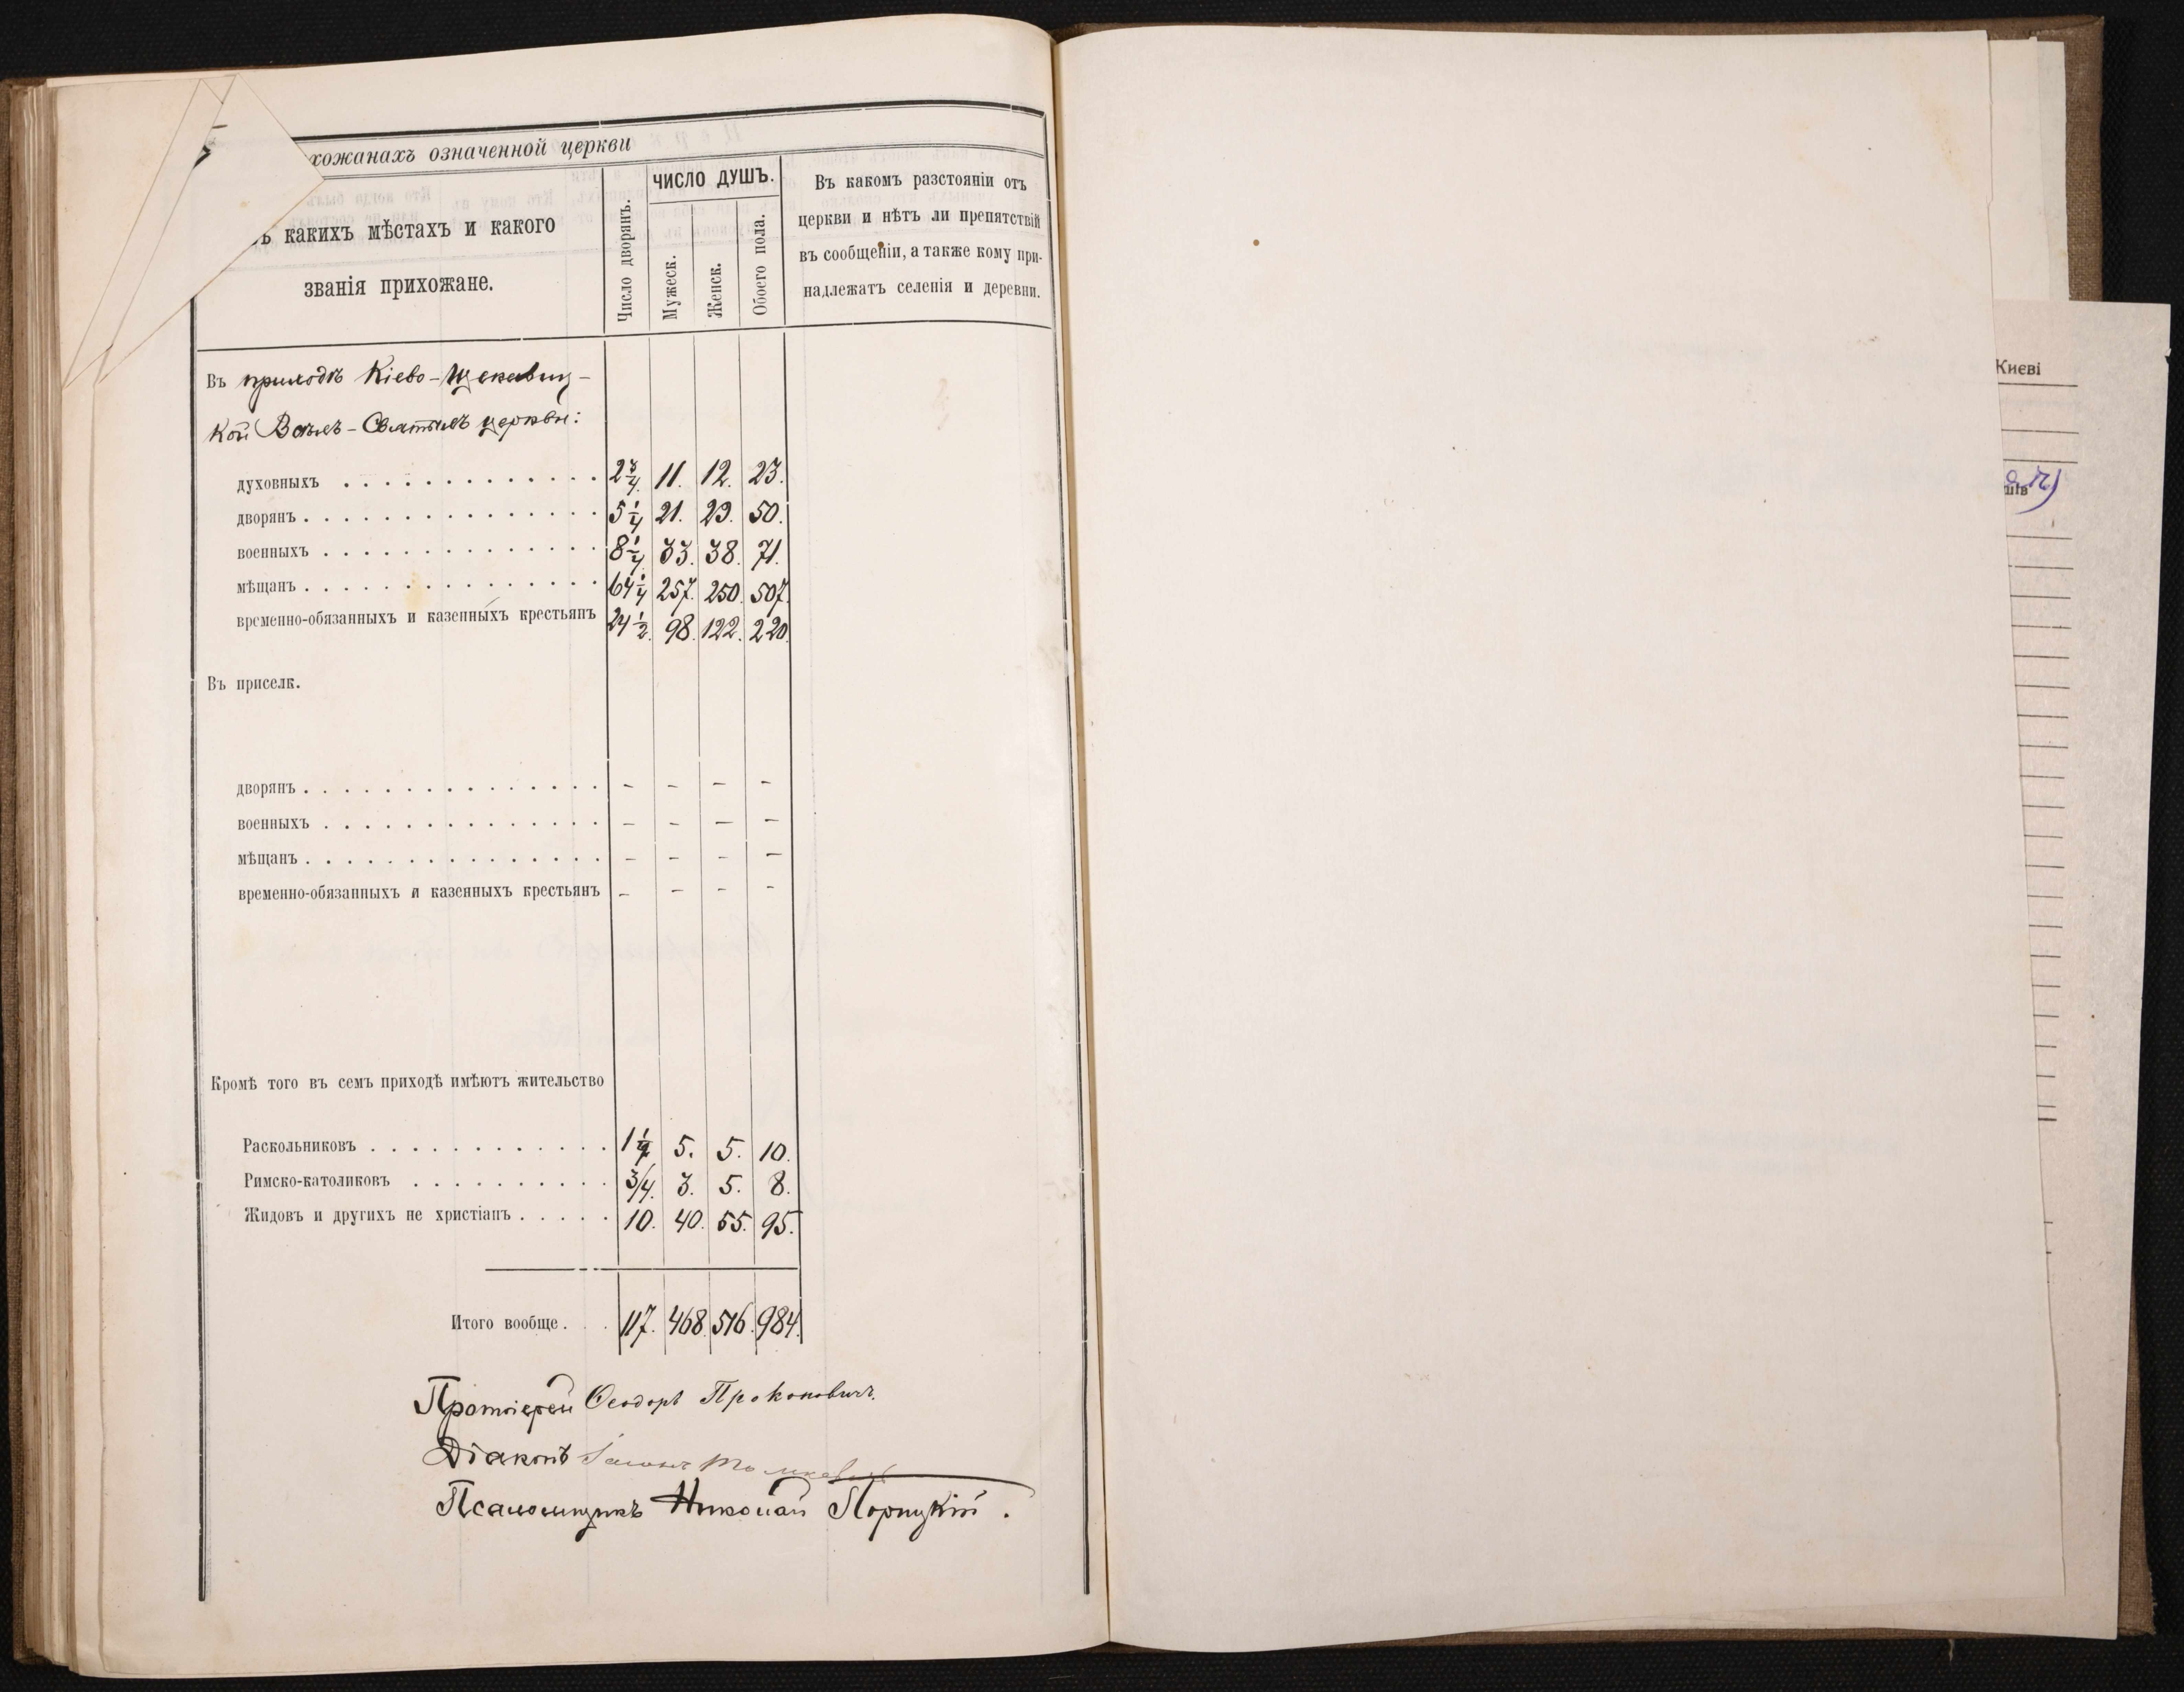 хожанахъ означенной церкви
ъ какихъ мѣстахъ и какого
званія прихожане.
Число дворянъ.
ЧИСЛО ДУШЪ.
Мужеск.
Женск.
Обоего пола.
Въ какомъ разстояніи отъ
церкви и нѣтъ ли препятствій
въ сообщеніи, а также кому при-
надлежатъ селенія и деревни.
Въ приходѣ Кіево-Щекавиц-
кой Всѣхъ-Святыхъ церкви:
духовныхъ 2 3/4. 11. 12. 23.
дворянъ 5 1/4 21. 29. 50.
военныхъ 8 1/4 33. 38. 71.
мѣщанъ 64 1/4 257. 250. 507.
временно-обязанныхъ и казенныхъ крестьянъ 24 1/2. 98. 122. 220.
Въ приселк.
дворянъ - - - -
военныхъ - - - -
мѣщанъ - - - -
временно-обязанныхъ и казенныхъ крестьянъ - - - -
Кромѣ того въ семъ приходѣ имѣютъ жительство
Раскольниковъ 1 1/4 5. 5. 10.
Римско-католиковъ 3/4. 3. 5. 8.
Жидовъ и другихъ не христіанъ 10. 40. 55. 95.
Итого вообще. 117. 468. 516. 984.
Протоіерей Ѳеодоръ Прокоповичъ.
Діаконъ
Псаломщикъ Николай Порицкій.
Києві